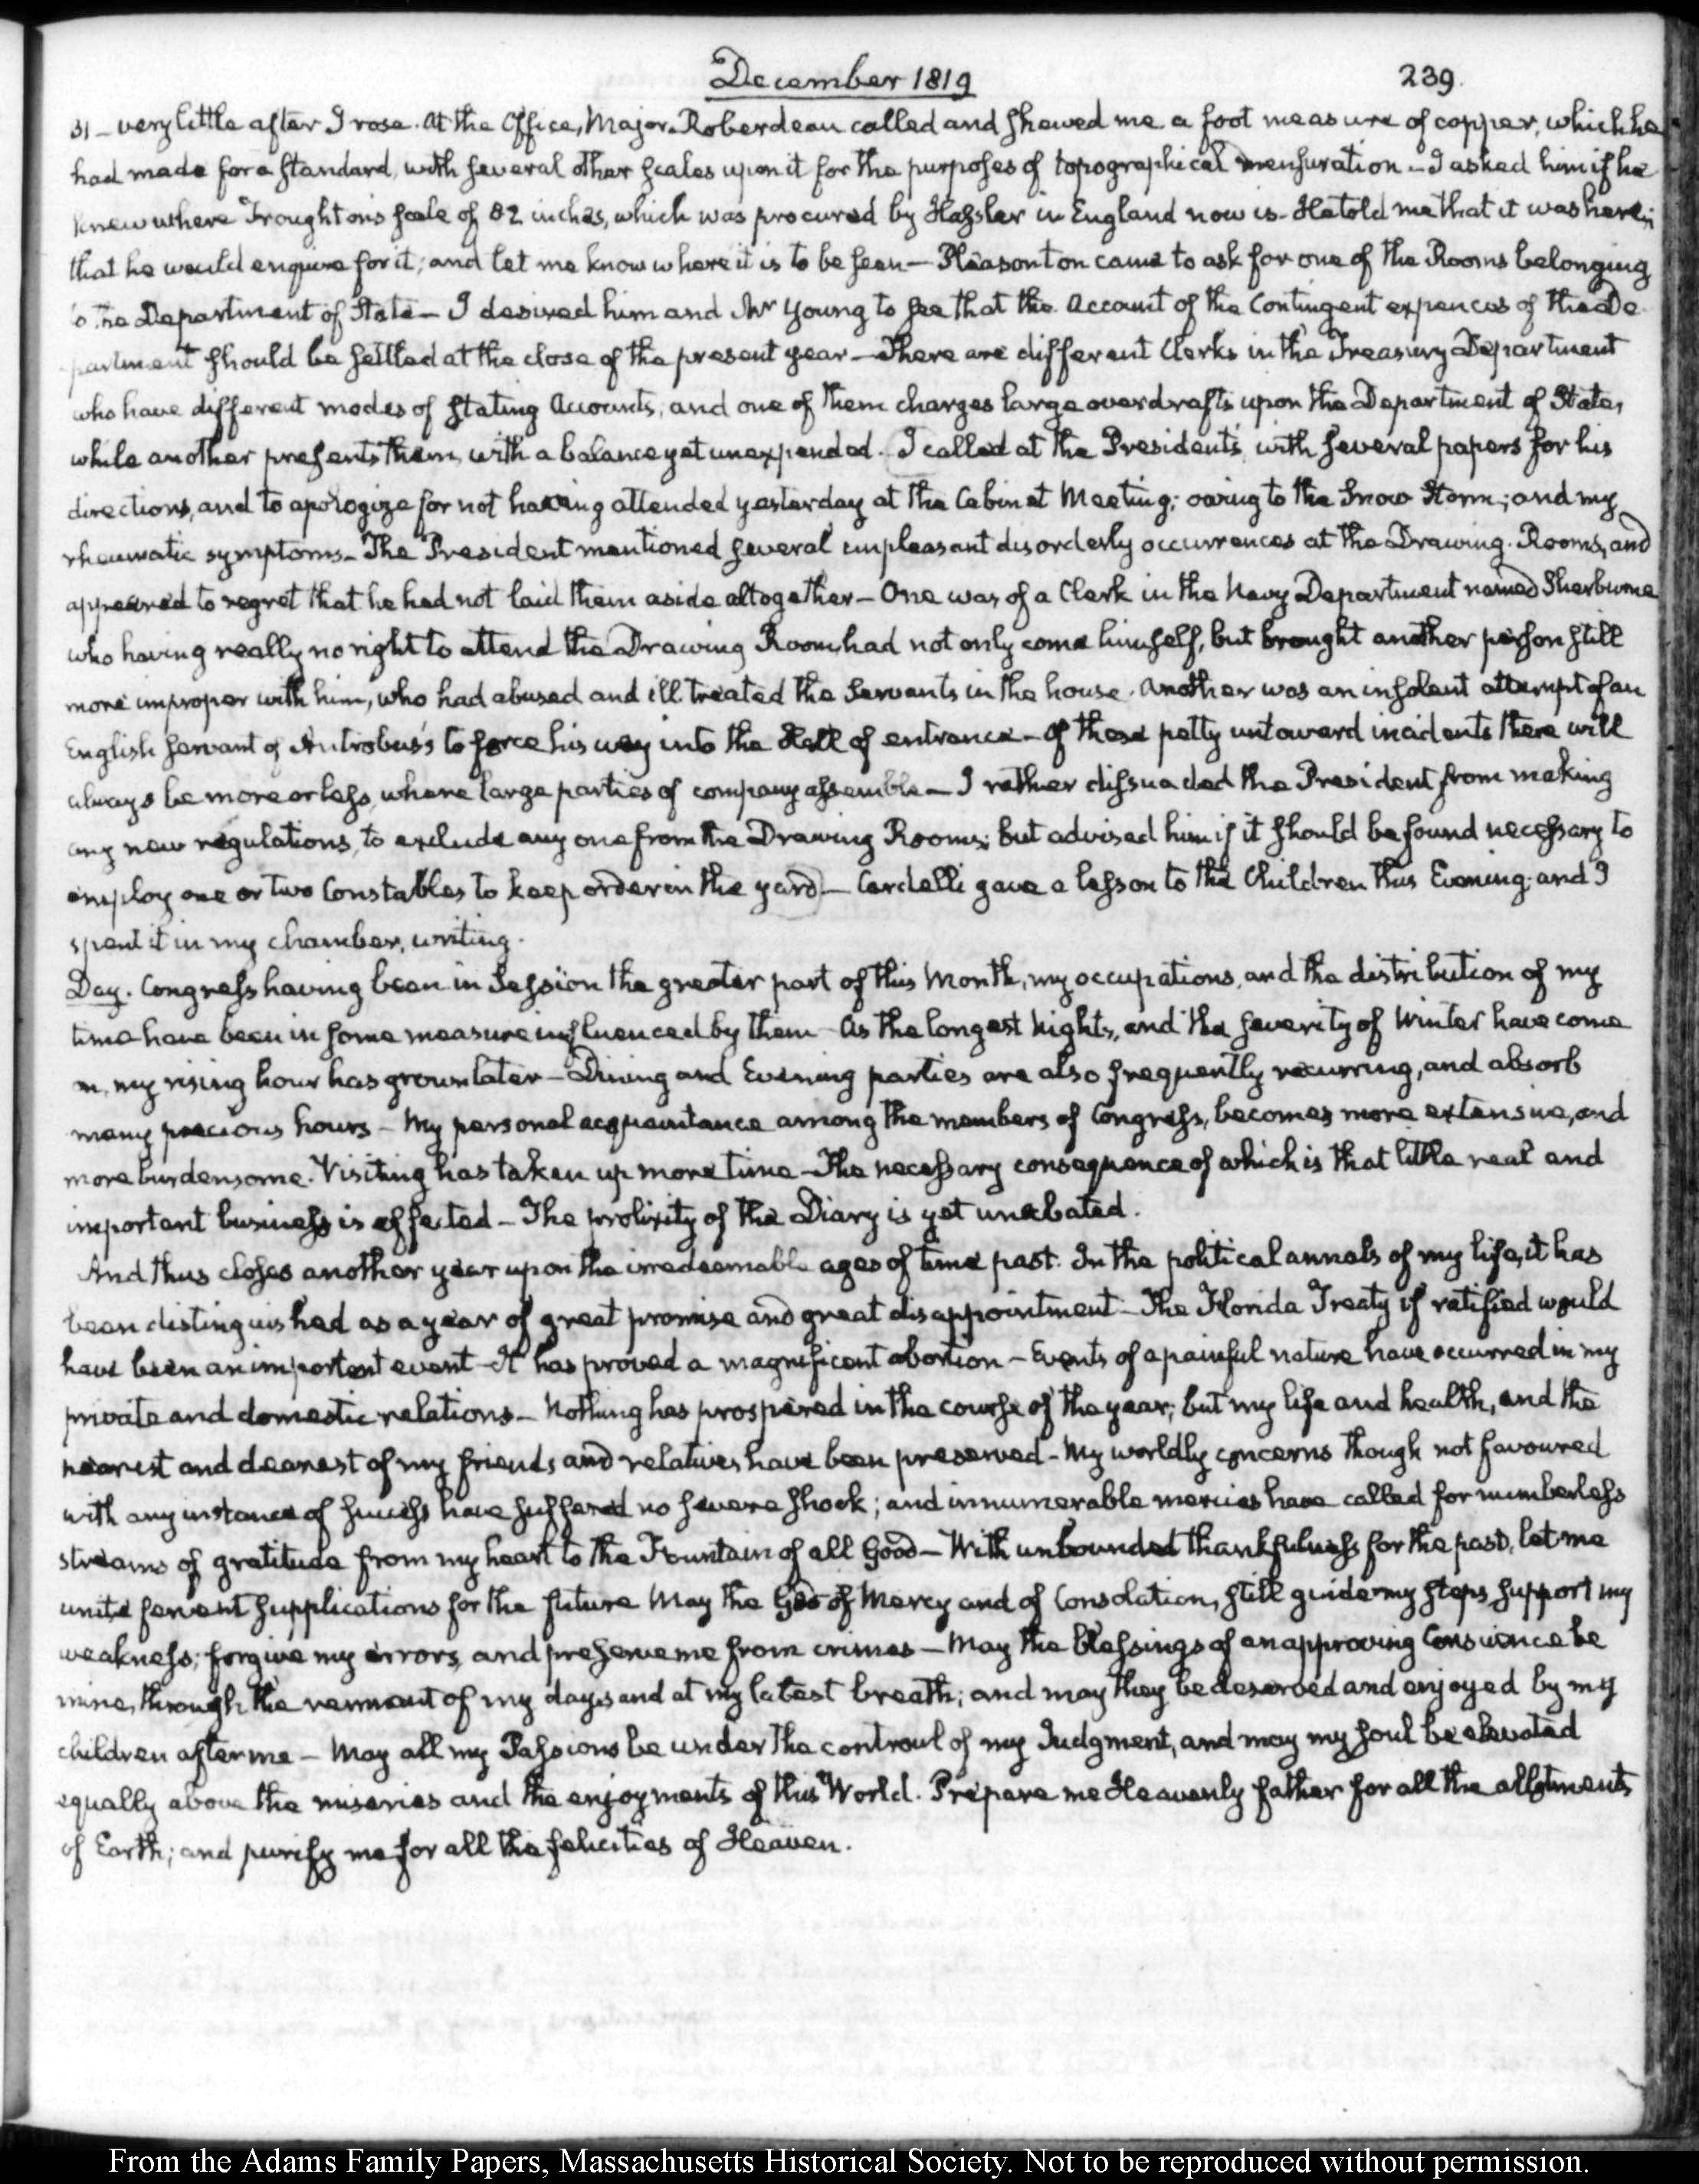 December 1819
239.
31 - very little after I rose. At the Office, Major Roberdeau called and shewed me a foot measure of copper, which he
had made for a standard, with several other scales upon it for the purposes of topographical mensuration - I asked him if he
knew where Troughton's scale of 82 inches, which was procured by Hassler in England now is - He told me that it was here;
that he would enquire for it; and let me know where it is to be seen - Pleasonton came to ask for one of the Rooms belonging
to the Department of State - I desired him and Mr Young to see that the Account of the Contingent expences of the De
partment should be settled at the close of the present year - There are different Clerks in the Treasury Department
who have different modes of stating Accounts, and one of them charges large overdrafts upon the Department of State,
while another presents them with a balance yet unexpended. I called at the President's with several papers for his
directions, and to apologize for not having attended yesterday at the Cabinet Meeting; owing to the Snow Storm; and my
rheumatic symptoms - The President mentioned several unpleasant disorderly occurrences at the Drawing Rooms, and
appeared to regret that he had not laid them aside altogether - One was of a Clerk in the Navy Department named Sherburne
who having really no right to attend the Drawing Room, had not only come himself, but brought another person still
more improper with him, who had abused and ill treated the servants in the house. Another was an insolent attempt of an
English servant of Antrobus's to force his way into the Hall of entrance - Of these petty untoward incidents there will
always be more or less, where large parties of company assemble - I rather dissuaded the President from making
any new regulations, to exclude any one from the Drawing Rooms; but advised him if it should be found necessary to
employ one or two Constables to keep order in the yard - Cardelli gave a lesson to the Children this Evening; and I
spent it in my chamber, writing.
Day. Congress having been in Session the greater part of this Month, my occupations, and the distribution of my
time have been in some measure influenced by them - As the longest Nights, and the severity of Winter have come
on, my rising hour has grown later - Dining and Evening parties are also frequently recurring, and absorb
many precious hours - My personal acquaintance among the members of Congress, becomes more extensive, and
more burdensome. Visiting has taken up more time - The necessary consequence of which is that little real and
important business is effected - The prolixity of the Diary is yet unabated.
And thus closes another year upon the irredeemable ages of time past. In the political annals of my life, it has
been distinguished as a year of great promise and great disappointment - The Florida Treaty if ratified would
have been an important event - It has proved a magnificent abortion - Events of a painful nature have occurred in my
private and domestic relations - Nothing has prospered in the course of the year; but my life and health, and the
nearest and dearest of my friends and relatives have been preserved - My worldly concerns though not favoured
with any instance of success have suffered no severe shock; and innumerable mercies have called for numberless
streams of gratitude from my heart to the Fountain of all Good - With unbounded thankfulness for the past, let me
unite fervent supplications for the future May the God of Mercy and of Consolation, still guide my steps, support my
weakness; forgive my errors, and preserve me from crimes - May the blessings of an approving Conscience be
mine, through the remnant of my days, and at my latest breath; and may they be deserved and enjoyed by my
children after me - May all my Passions be under the controul of my Judgment, and may my soul be elevated
equally above the miseries and the enjoyments of this World. Prepare me Heavenly father for all the allotments
of Earth; and purify me for all the felicities of Heaven.
From the Adams Family Papers, Massachusetts Historical Society. Not to be reproduced without permission.